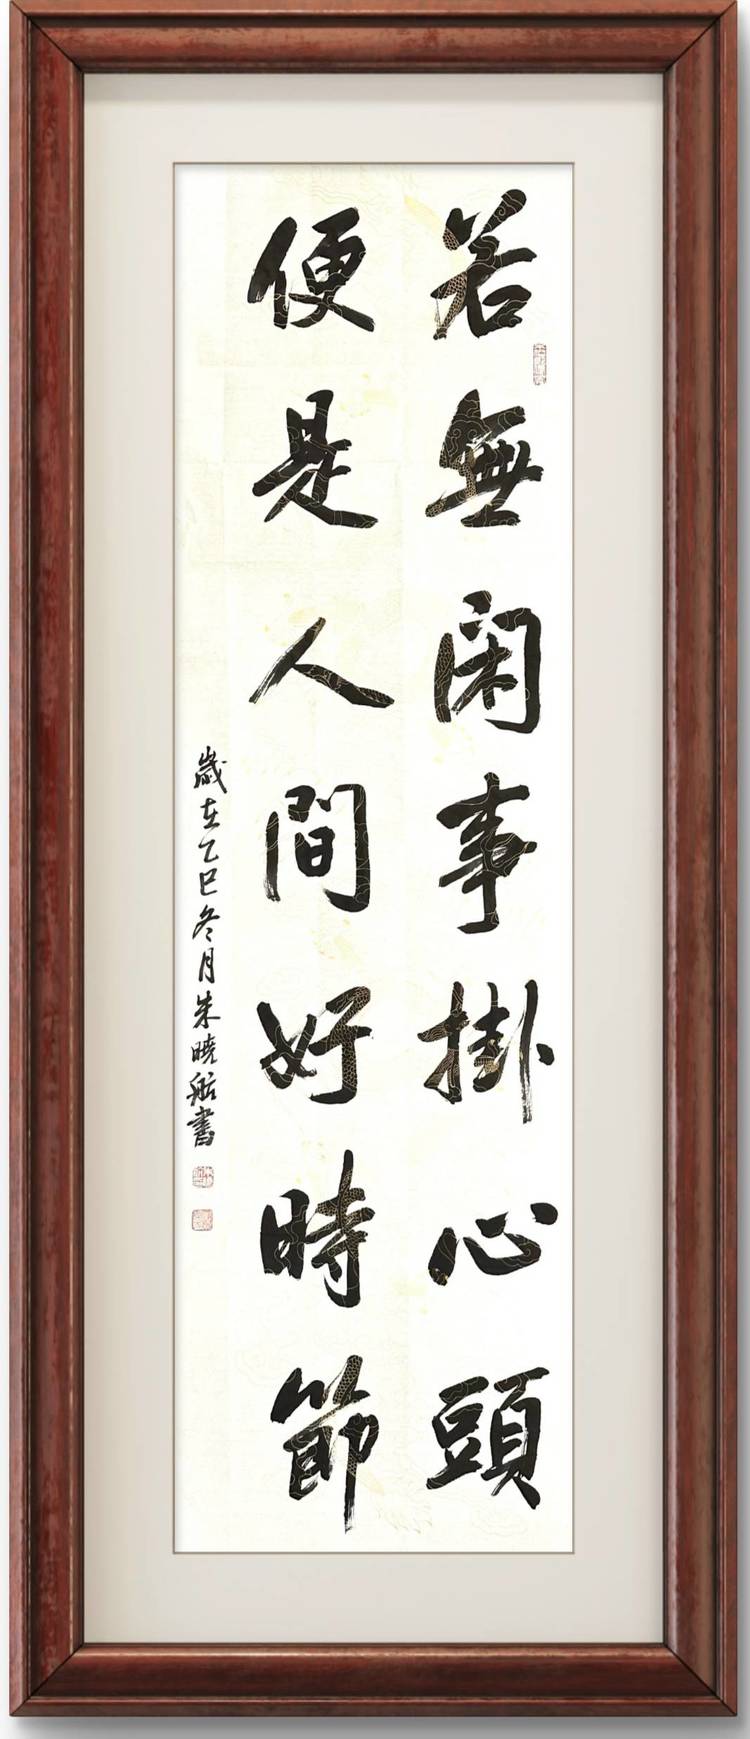 若無闲事掛心頭
便是人間好時節
歳在乙巳冬月朱曉舷書